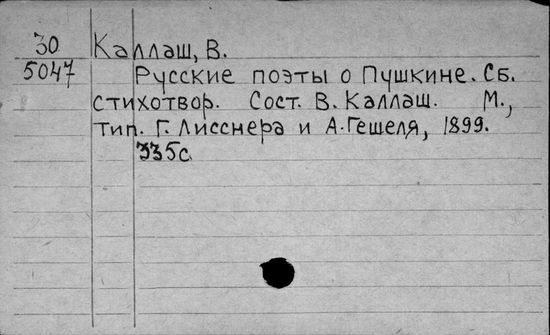 30 Каллаш, В.
5047 Русские поэты о Пушкине. Сб.
стихотвор. Сост. В. Каллаш. М.,
тип. Г. Лисснера и А. Гешеля, 1899.
335с.